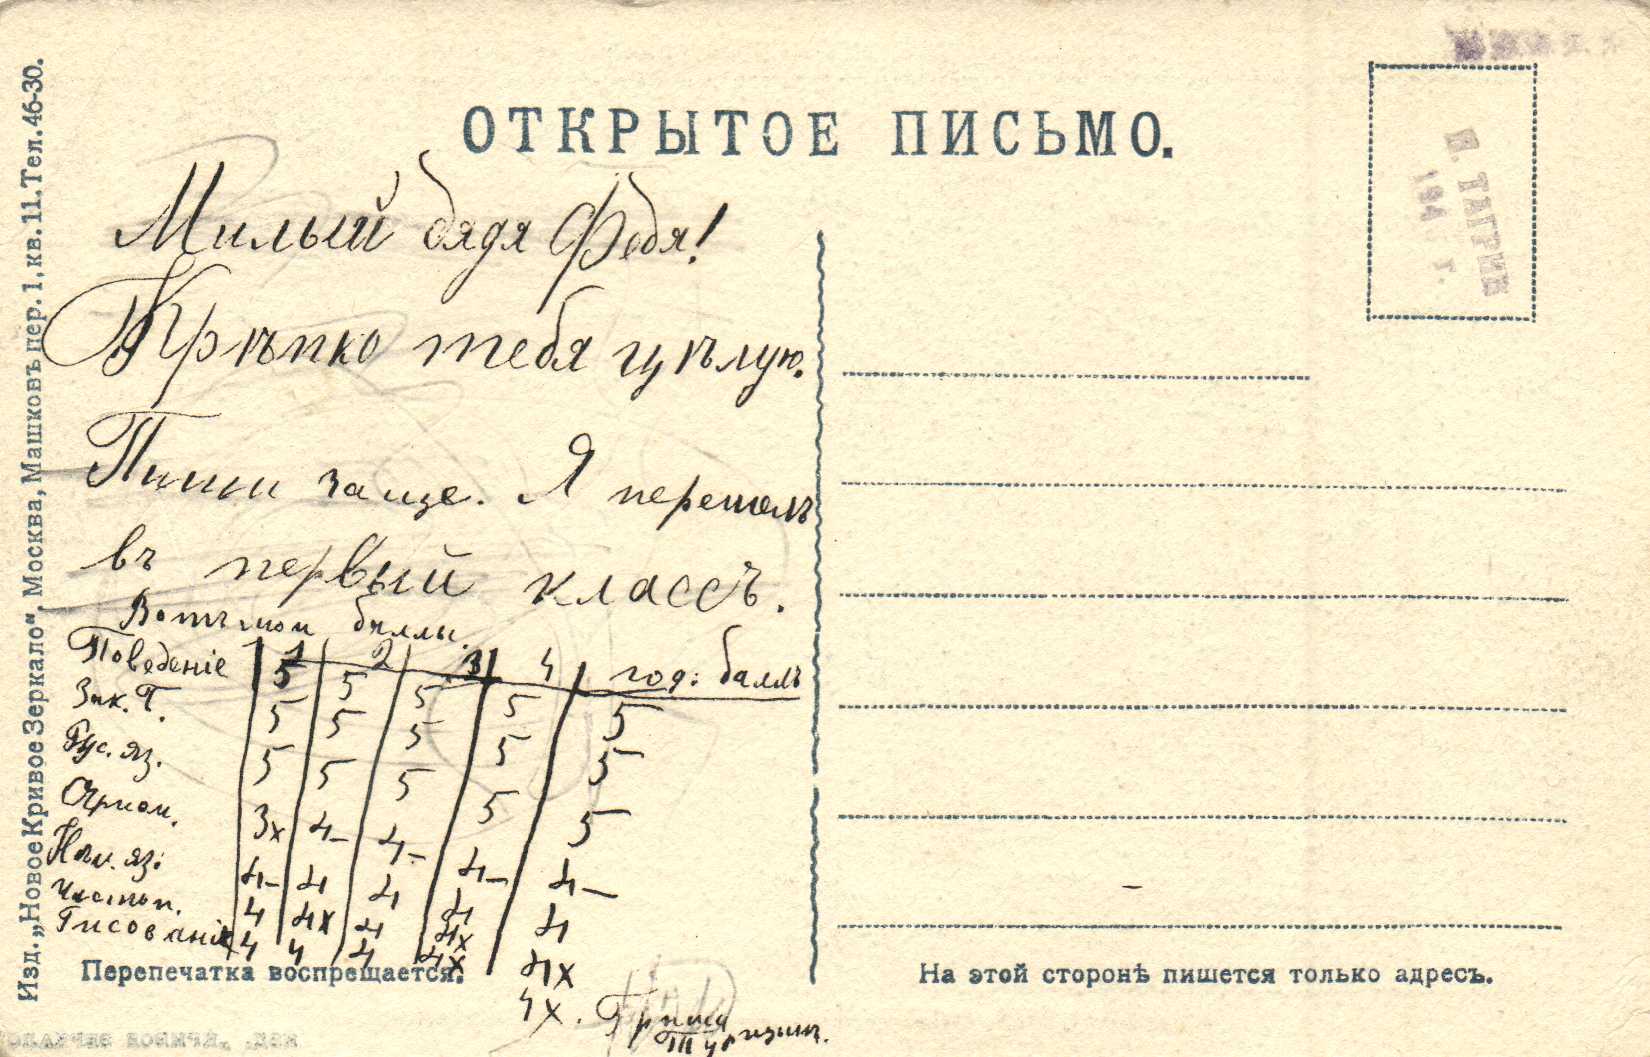 ОТКРЫТОЕ ПИСЬМО.
Изд. „Новое Кривое Зеркало“, Москва, Машковъ пер. 1, кв. 11. Тел. 46-30.
Милый дядя Федя!
Крѣпко тебя цѣлую.
Пиши чаще. Я перешолъ
въ первый классъ.
Вотъ мои баллы.
1 2 3 4 год: баллъ
Поведеніе 5 5 5 5 5
Зак. Б. 5 5 5 5 5
Рус. яз. 5 5 5 5 5
Арифм. 3x 4- 4- 4- 4-
Нѣм. яз: 4- 4 4 4 4
Чистоп. 4 4x 4 4x 4x
Рисованіе 4 4 4 4x 4x.
Гриша
Перепечатка воспрещается.
На этой сторонѣ пишется только адресъ.